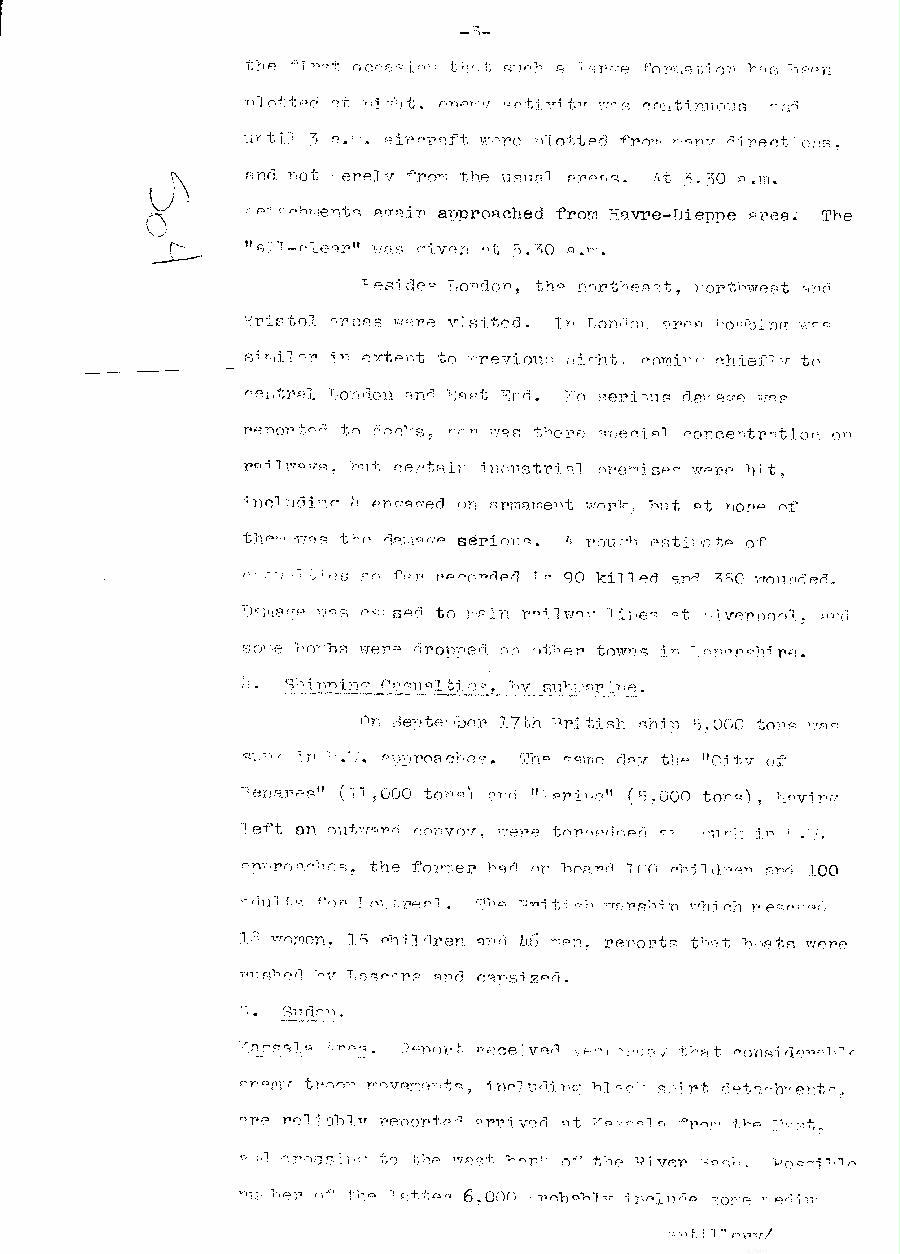 -3-
the first occasion that such a large formation has been
plotted at night, enemy activity was continuous and
until 3 a.m. aircraft were plotted from many directions,
and not merely from the usual areas. At 3.30 a.m.
detachments again approached from Havre-Dieppe area. The
"all-clear" was given at 5.30 a.m.
Besides London, the northeast, northwest and
Bristol areas were visited. In London area bombing was
similar in extent to previous night, coming chiefly to
central London and East End. No serious damage was
reported to docks, nor was there special concentration on
railways, but certain industrial premises were hit,
including 8 engaged on armament work, but at none of
them was the damage serious. A rough estimate of
casualties so far recorded is 90 killed and 350 wounded.
Damage was caused to main railway lines at Liverpool, and
some bombs were dropped on other towns in Lancashire.
Shipping Casualties, by submarine.
On September 17th British ship 5,000 tons was
sunk in N.W. approaches. The same day the "City of
Benares" (11,000 tons) and "Marina" (5,000 tons), having
left an outward convoy, were torpedoed and sunk in N.W.
approaches, the former had on board 100 children and 100
adults for Montreal. The British warship which rescued
18 women, 15 children and 46 men, reports that boats were
rushed by Lascars and capsized.
Sudan.
Kassala Area. Report received yesterday that considerable
enemy troop movements, including black shirt detachments,
are reliably reported arrived at Kassala from the East,
and crossing to the west bank of the River Gash. Possible
number of the latter 6,000 probably include some medium
artillery/